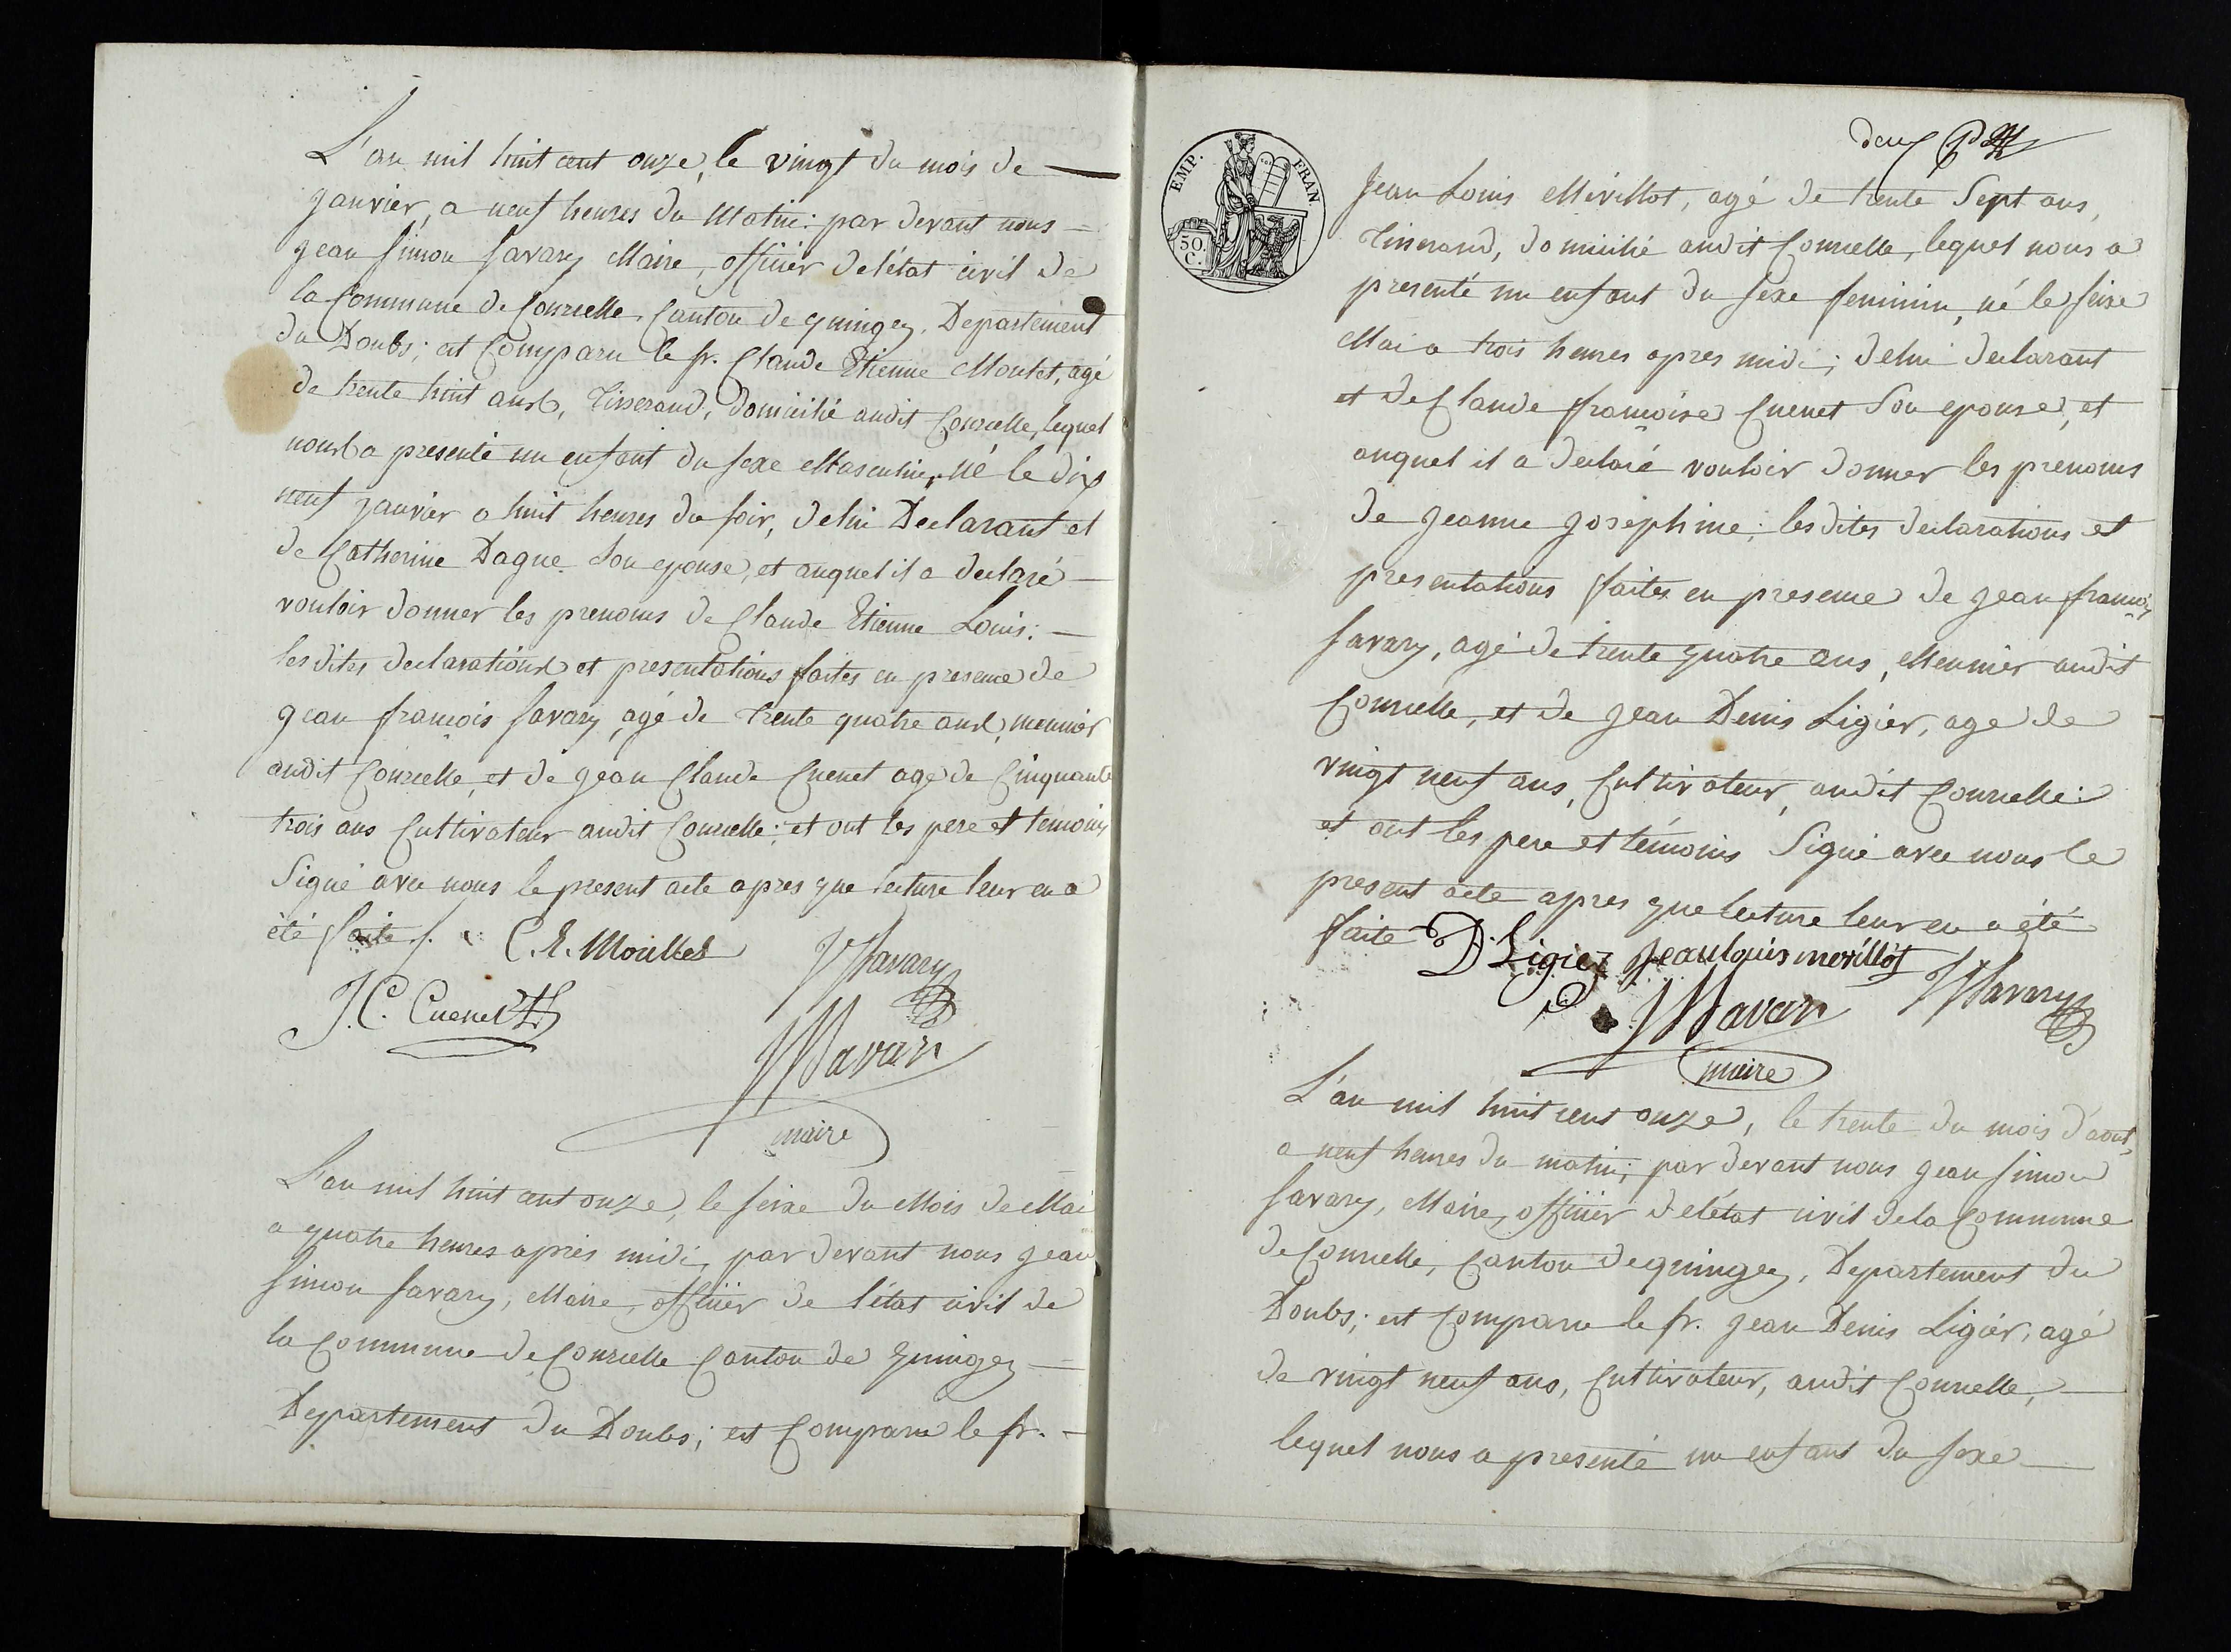 L'an mil huit cent onze, le vingt du mois de
janvier, a neuf heures du Matin: par devant nous
jean Simon Savary Maire, officier de l'état civil de
la Commune de Courcelle, Canton de quingey, Departement
du Doubs; est Comparu le sr. Claude Etienne Moutet, agé
de trente huit ans, Tisserand, domicilié audit Courcelle, lequel
nous a presenté un enfant du sexe Masculin, né le dix
neuf janvier a huit heures du soir, de lui Declarant et
de Catherine Dague Son epouse, et auquel il a declaré
vouloir donner les prenoms de Claude Etienne Louis:
les dites declarations et presentations faites en presence de
jean françois Savary, agé de trente quatre ans, meunier
audit Courcelle, et de jean Claude Cuenet agé de Cinquante
trois ans Cultivateur audit Courcelle: et ont les pere et temoins
Signé avec nous le present acte apres que lecture leur en a
été faite. C. E. Mouttet Savary
J. C. Cuenet
Savary
maire
L'an mil huit cent onze, le seize du Mois de Mai
a quatre heures après midi, par devant nous jean
Simon Savary, Maire, officier de l'état civil de
la Commune de Courcelle Canton de quingey
Departement du Doubs; est Comparu le sr.
deux
EMP. FRAN
50.
C.
Jean Louis Mérillot, agé de trente Sept ans,
Tisserand, domicilié audit Courcelle, lequel nous a
presenté un enfant du sexe feminin, né le seize
Mai a trois heures apres midi; de lui declarant
et de Claude françoise Cuenet Son epouse, et
auquel il a declaré vouloir donner les prenoms
de jeanne josephine: les dites declarations et
presentations faites en presence de jean françois
Savary, agé de trente quatre ans, Meunier audit
Courcelle, et de jean Denis Ligier, agé de
vingt neuf ans, Cultivateur, audit Courcelle:
et ont les pere et témoins Signé avec nous le
present acte apres que lecture leur en a été
faite D. Ligier jean louis merillot
Savary Savary
maire
L'an mil huit cent onze, le trente du mois d'aout,
a neuf heures du matin; par devant nous jean Simon
Savary, Maire, officier de l'état civil de la Commune
de Courcelle, Canton de quingey, Departement du
Doubs; est Comparu le sr. jean Denis Ligier, agé
de vingt neuf ans, Cultivateur, audit Courcelle,
lequel nous a presenté un enfant du sexe